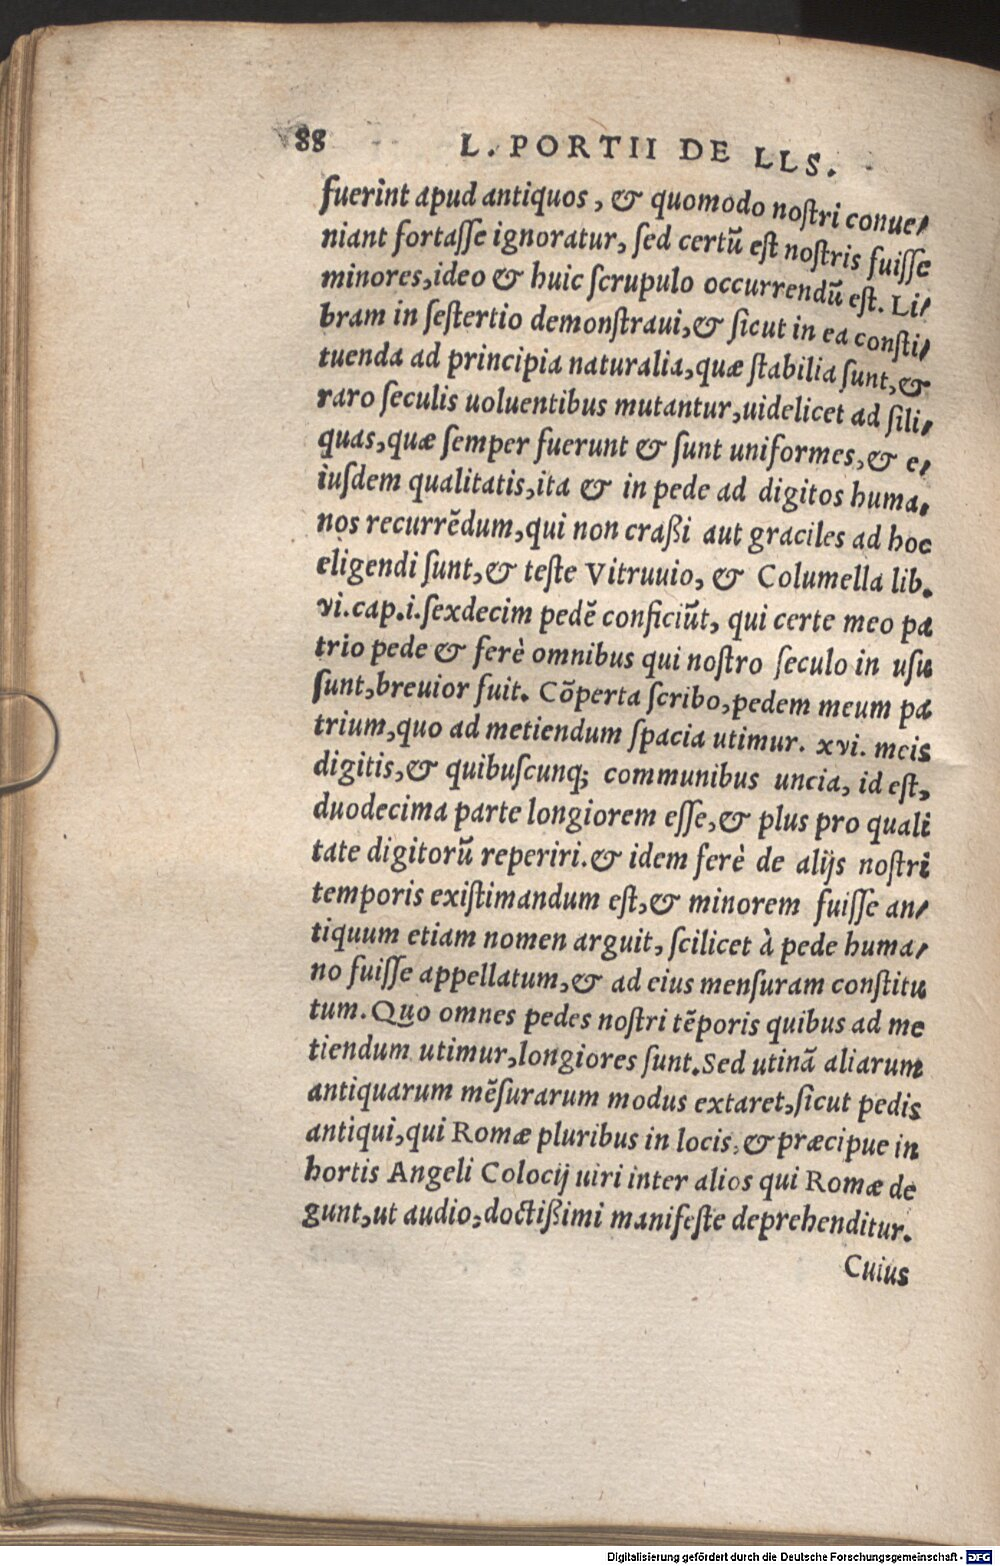 88 L. PORTII DE LLS.
fuerint apud antiquos, & quomodo nostri conue-
niant fortasse ignoratur, sed certũ est nostris fuisse
minores, ideo & huic scrupulo occurrendũ est. Li-
bram in sestertio demonstraui, & sicut in ea consti-
tuenda ad principia naturalia, quæ stabilia sunt, &
raro seculis uoluentibus mutantur, uidelicet ad sili-
quas, quæ semper fuerunt & sunt uniformes, & e-
iusdem qualitatis, ita & in pede ad digitos huma-
nos recurrẽdum, qui non craßi aut graciles ad hoc
eligendi sunt, & teste Vitruuio, & Columella lib.
vi. cap. i. sexdecim pedẽ conficiũt, qui certe meo pa
trio pede & ferè omnibus qui nostro seculo in usu
sunt, breuior fuit. Cõperta scribo, pedem meum pa
trium, quo ad metiendum spacia utimur. xvi. meis
digitis, & quibuscunq; communibus uncia, id est,
duodecima parte longiorem esse, & plus pro quali
tate digitorũ reperiri. & idem ferè de alijs nostri
temporis existimandum est, & minorem fuisse an-
tiquum etiam nomen arguit, scilicet à pede huma-
no fuisse appellatum, & ad eius mensuram constitu
tum. Quo omnes pedes nostri tẽporis quibus ad me
tiendum utimur, longiores sunt. Sed utinã aliarum
antiquarum mẽsurarum modus extaret, sicut pedis
antiqui, qui Romæ pluribus in locis, & præcipue in
hortis Angeli Colocij uiri inter alios qui Romæ de
gunt, ut audio, doctißimi manifeste deprehenditur.
Cuius
Digitalisierung gefördert durch die Deutsche Forschungsgemeinschaft - DFG